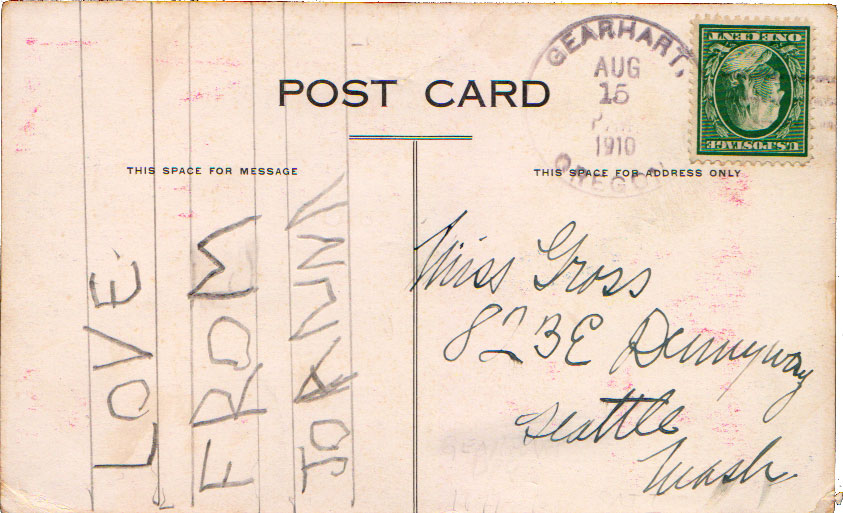 POST CARD
GEARHART,
AUG
15
1910
OREGON
U.S. POSTAGE
ONE CENT
THIS SPACE FOR MESSAGE
LOVE
FROM
JOANNA
THIS SPACE FOR ADDRESS ONLY
Miss Gross
823 E Dennyway
Seattle
Wash